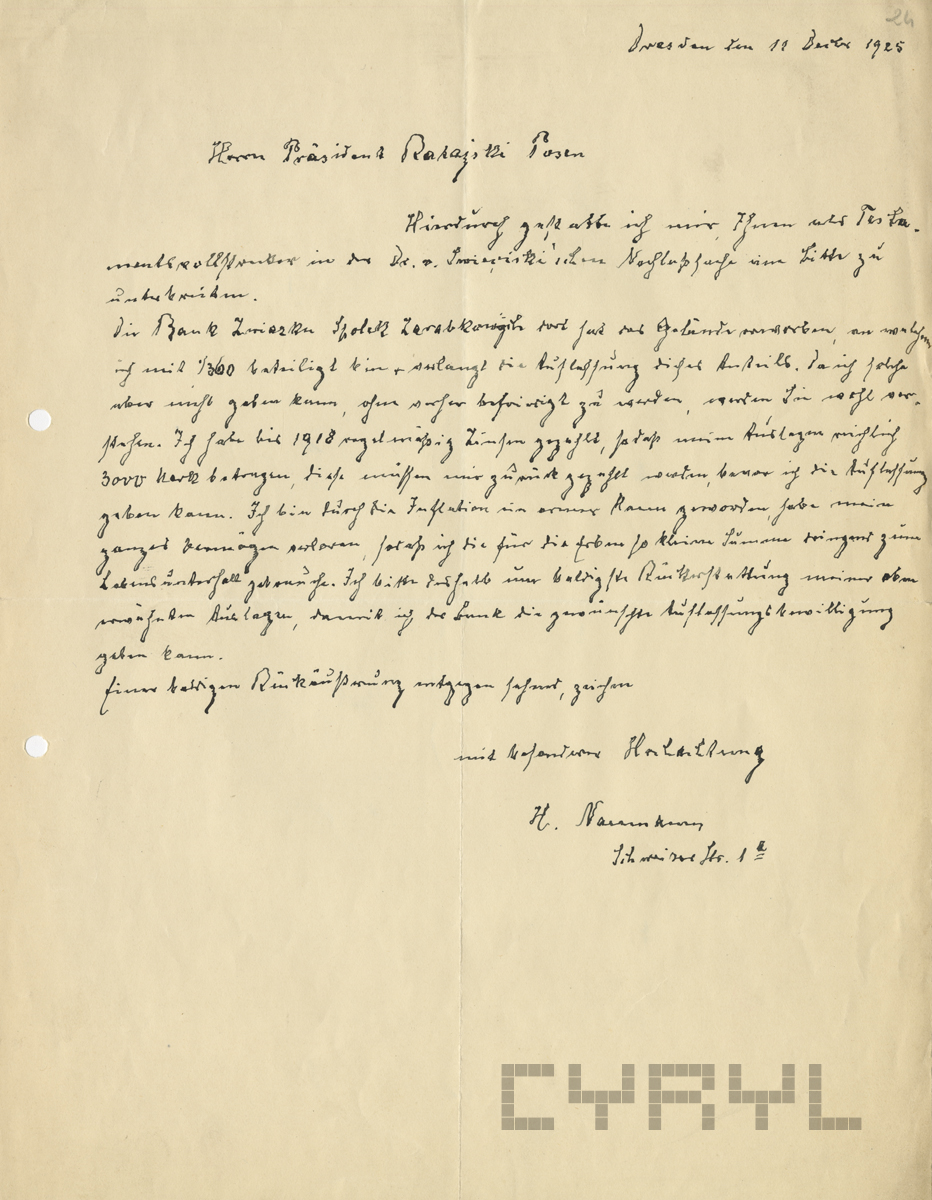 24
Dresden den 11 Decbr 1925
Herrn Präsident Ratajski Posen
Hierdurch gestatte ich mir, Ihnen als Testa-
mentsvollstrecker in der Dr. v. 'schen Nachlaßsache eine Bitte zu
unterbreiten.
Die Bank Zwiazku Spolek Zarobkowych dort hat das Gelände erworben, an welchem
ich mit 1/360 beteiligt bin & verlangt die Auflassung dieses Anteils. Da ich solche
aber nicht geben kann, ohne vorher befriedigt zu werden, werden Sie wohl ver-
stehen. Ich habe bis 1918 regelmäßig Zinsen gezahlt, sodaß meine Auslagen reichlich
3000 Mark betragen, diese müssen mir zurück gezahlt werden, bevor ich die Auflassung
geben kann. Ich bin durch die Inflation ein armer Mann geworden, habe mein
ganzes Vermögen verloren, sodaß ich die für die Erben so kleine Summe dringend zum
Lebensunterhalt gebrauche. Ich bitte deshalb um baldigste Rückerstattung meiner oben
erwähnten Auslagen, damit ich der Bank die gewünschte Auflassungsbewilligung
geben kann.
Einer baldigen Rückäußerung entgegen sehend, zeichne
mit besonderer Hochachtung
H. Naumann
Schweizer Str. 1
CYRYL